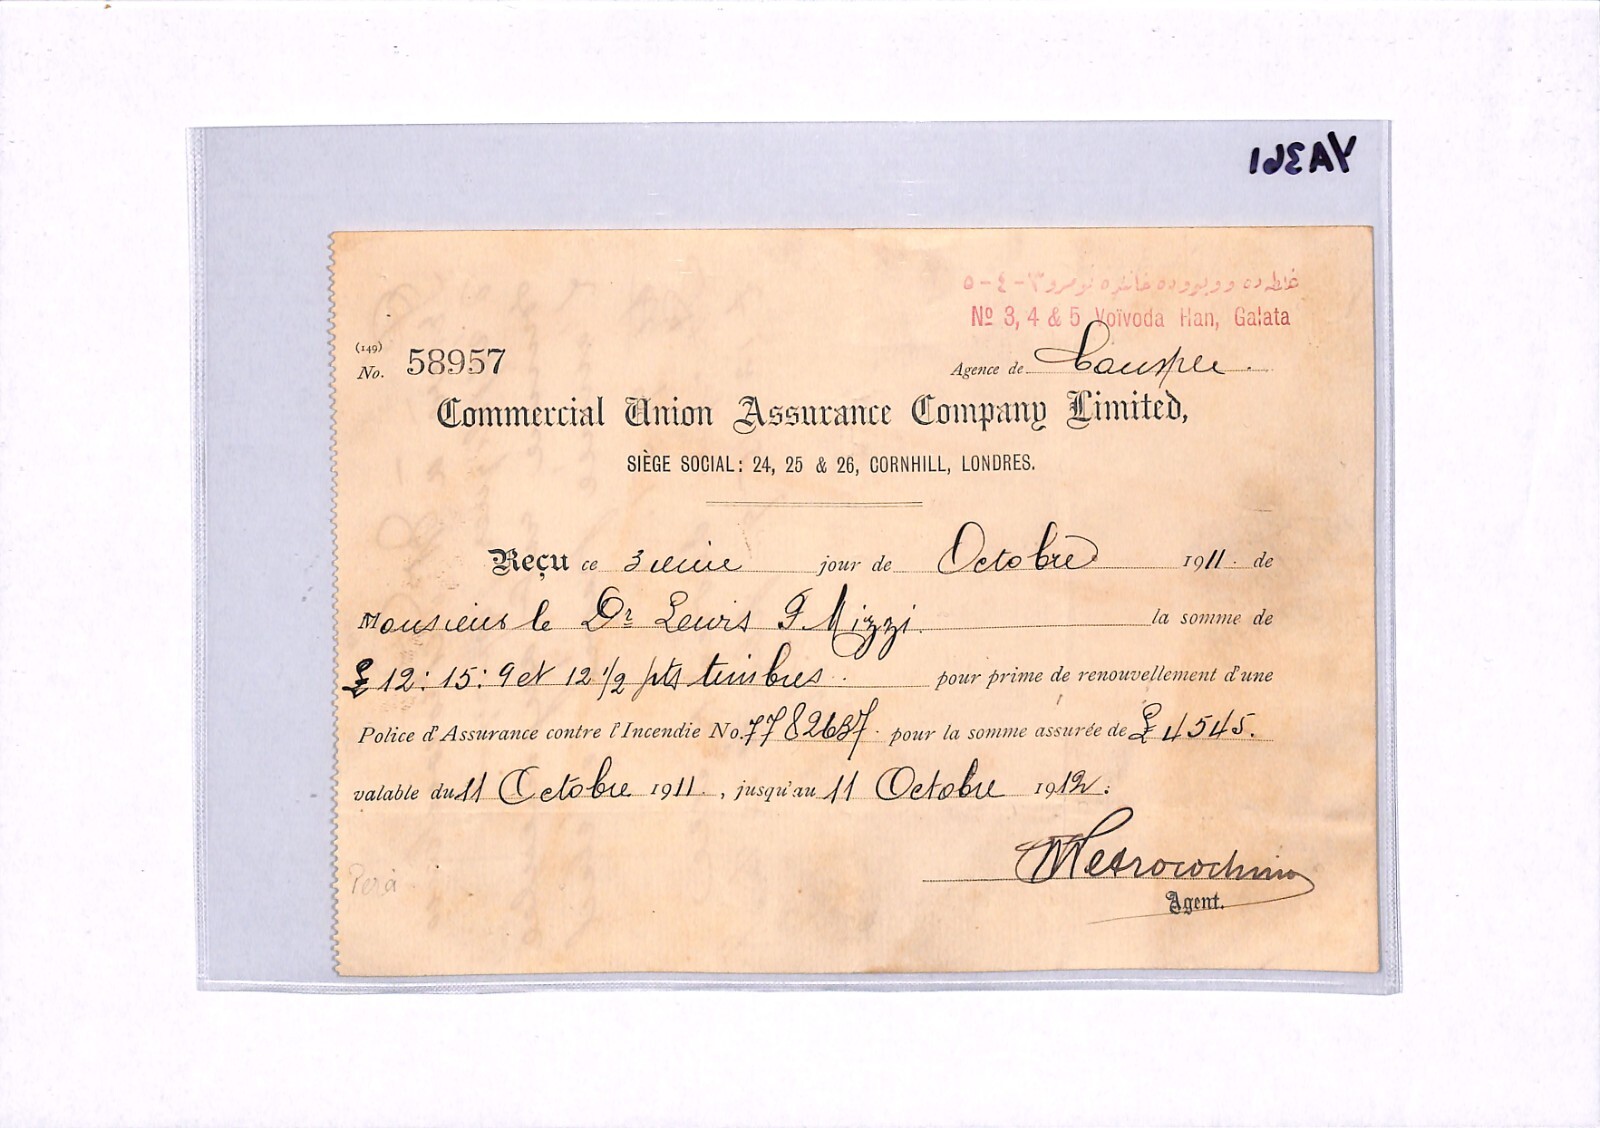 YA361
غلطه ده وويووده خاننده نومرو ٣-٤-٥
Nº 3, 4 & 5 Voïvoda Han, Galata
(149)
No. 58957
Agence de Conspee
Commercial Union Assurance Company Limited,
SIÈGE SOCIAL: 24, 25 & 26, CORNHILL, LONDRES.
Reçu ce 3 eme jour de Octobre 1911. de
Monsieur le Dr Lewis F Mizzi. la somme de
£ 12: 15: 9 et 12 1/2 pts timbres. pour prime de renouvellement d'une
Police d'Assurance contre l'Incendie No. 7782637. pour la somme assurée de £ 4545.
valable du 11 Octobre 1911., jusqu'au 11 Octobre 1912.
Pera
Agent.